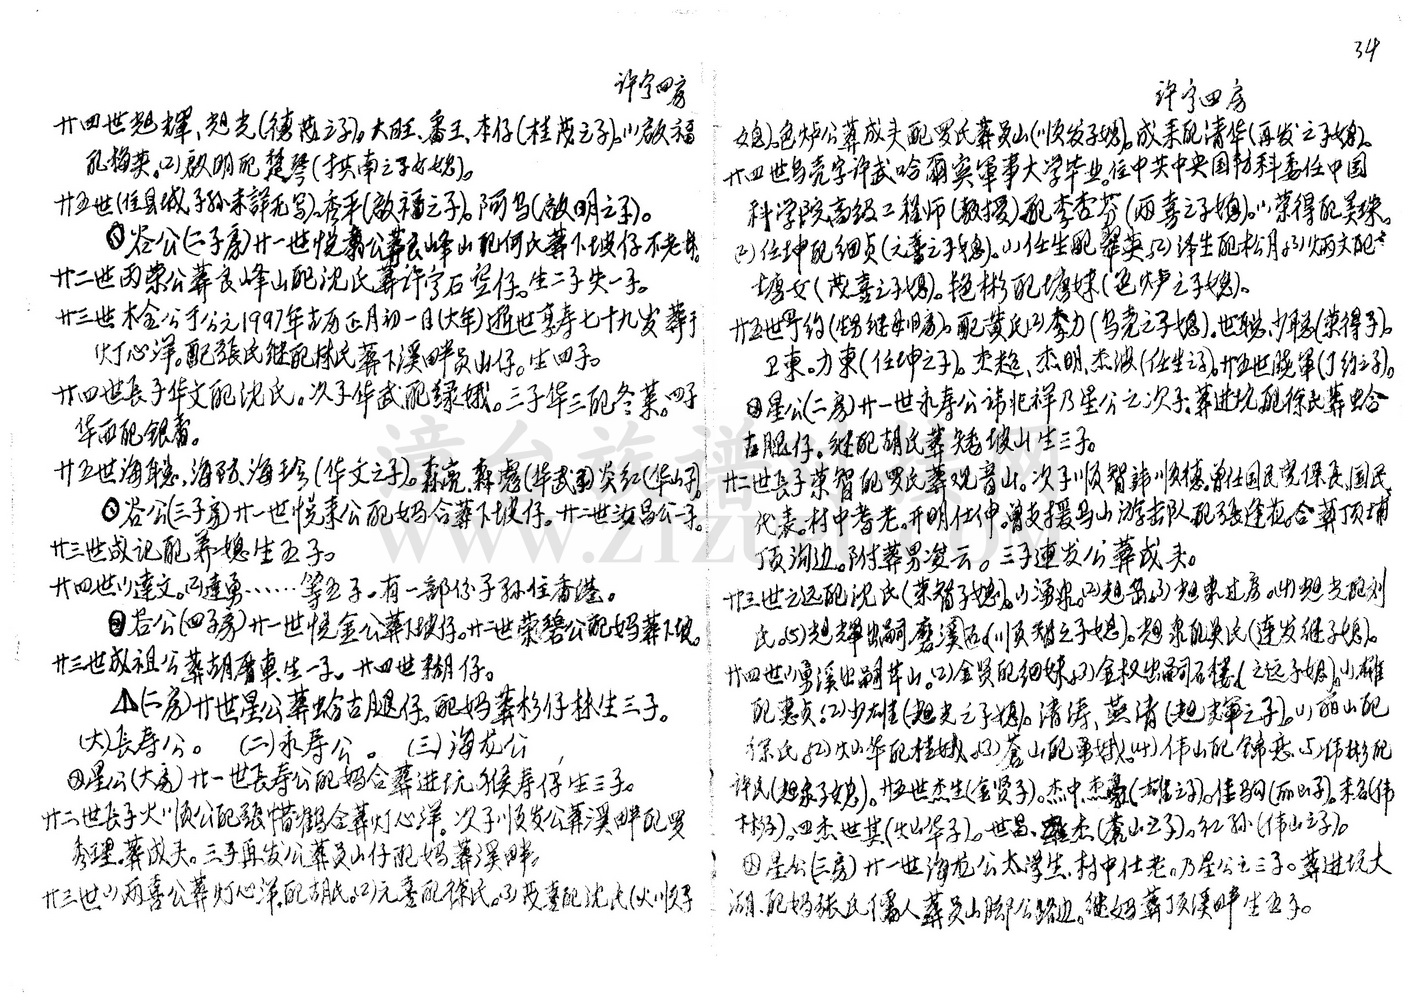 34
许宁四房
廿四世旭辉、旭光(德茂之子)。大旺、番王、本仔(桂茂之子)。(1)啟福
配梅英。(2)啟明配楚琴(拱南之子女媳)。
廿五世(住县城子孙未詳无写)。秀平(啟福之子)。阿鸟(啟明之子)。
谷公(二子房)廿一世悦 公葬良峰山配何氏葬下坡仔不老林。
廿二世两荣公葬良峰山配沈氏葬许宁石 仔。生二子失一子。
廿三世木金公于公元1997年古历正月初一日(大年)逝世享寿七十九岁葬于
灯心洋。配張氏继配林氏葬下溪畔员山仔。生四子。
廿四世長子华文配沈氏。次子华武配绿娥。三子华三配冬菜。四子
华西配银香。
廿五世海聪、海 海珍(华文之子)。森亮、森彪(华武 )炎红(华山子)。
谷公(三子房)廿一世悦来公配妈合葬下坡仔。廿二世汝昌公一子。
廿三世成记配养媳生五子。
廿四世(1)達文。(2)達勇……等五子。有一部份子孙住香港。
谷公(四子房)廿一世悦金公葬下坡仔。廿二世荣碧公配妈葬下坡。
廿三世成祖公葬胡厝車生一子。廿四世糊仔。
(二房)廿世星公葬蛤古腿仔。配妈葬杉仔林生三子。
(大)長寿公。 (二)永寿公。 (三)海龙公
星公(大房)廿一世長寿公配妈合葬进坑猴寿仔生三子。
廿二世長子火順公配張惜鹤合葬灯心洋。次子順发公葬溪畔配罗
秀理。葬成夫。三子再发公葬员山仔配妈葬溪畔。
廿三世(1)两喜公葬灯心洋。配胡氏。(2)元喜配徐氏。(3)茂喜配沈氏(火順子
许宁四房
媳)。色炉公葬成夫配罗氏葬员山(順发子媳)。成来配清华(再发之子媳)。
廿四世乌壳字许武哈爾宾軍事大学毕业。任中共中央国防科委任中国
科学院高级工程师(教授)配李杏芬(两喜之子媳)。(1)荣得配美珠。
(2)任坤配细貞(元喜之子媳)。(1)任生配翠英。(2)泽生配松月。(3)炳文配
塘女(茂喜之子媳)。艳彬配塘妹(色炉之子媳)。
廿五世丁约(生男继母旧房)。配黄氏(2)李力(乌壳之子媳)。世聪、少聪(荣得子)。
卫東。力東(任坤之子)。杰超、杰明、杰波(任生之子)。廿五世晓軍(丁约之子)。
星公(二房)廿一世永寿公讳兆祥乃星公之次子。葬进坑配徐氏葬蛤
古腿仔。继配胡氏葬矮坡山生三子。
廿二世長子荣智配罗氏葬观音山。次子順智諱順德。曾任国民党保長、国民
代表。村中耆老。开明仕伸。曾支援乌山游击队配張莲花。合葬顶埔
顶沟边。附葬男凌云。三子連发公葬成夫。
廿三世之远配沈氏(荣智子媳)。(1)湧泉。(2)旭岳。(3)旭東过房。(4)旭光配刘
氏。(5)旭輝出嗣磨溪 (順智之子媳)。旭東配吴氏(連发继子媳)。
廿四世(1)勇溪出嗣草山。(2)金贤配细妹。(3)金权出嗣石楼(之远子媳)。(1)雄
配惠贞。(2)少雄(旭光之子媳)。清涛、燕清(旭輝之子)。(1)丽山配
徐氏。(2)火山华配桂娥。(3)蒼山配勇娥。(4)伟山配锦恋。(5)伟彬配
许氏(旭東子媳)。廿五世杰生(金贤子)。杰中、杰豪(雄之子)。佳驹(丽山子)。未名(伟
彬子)。四杰、世其(火山华子)。世昌、 杰(蒼山之子)。红孙(伟山之子)。
星公(三房)廿一世海龙公太学生、村中仕老。乃星公之三子。葬进坑大
湖、配妈張氏儒人葬员山脚公路边。继妈葬顶溪畔生五子。